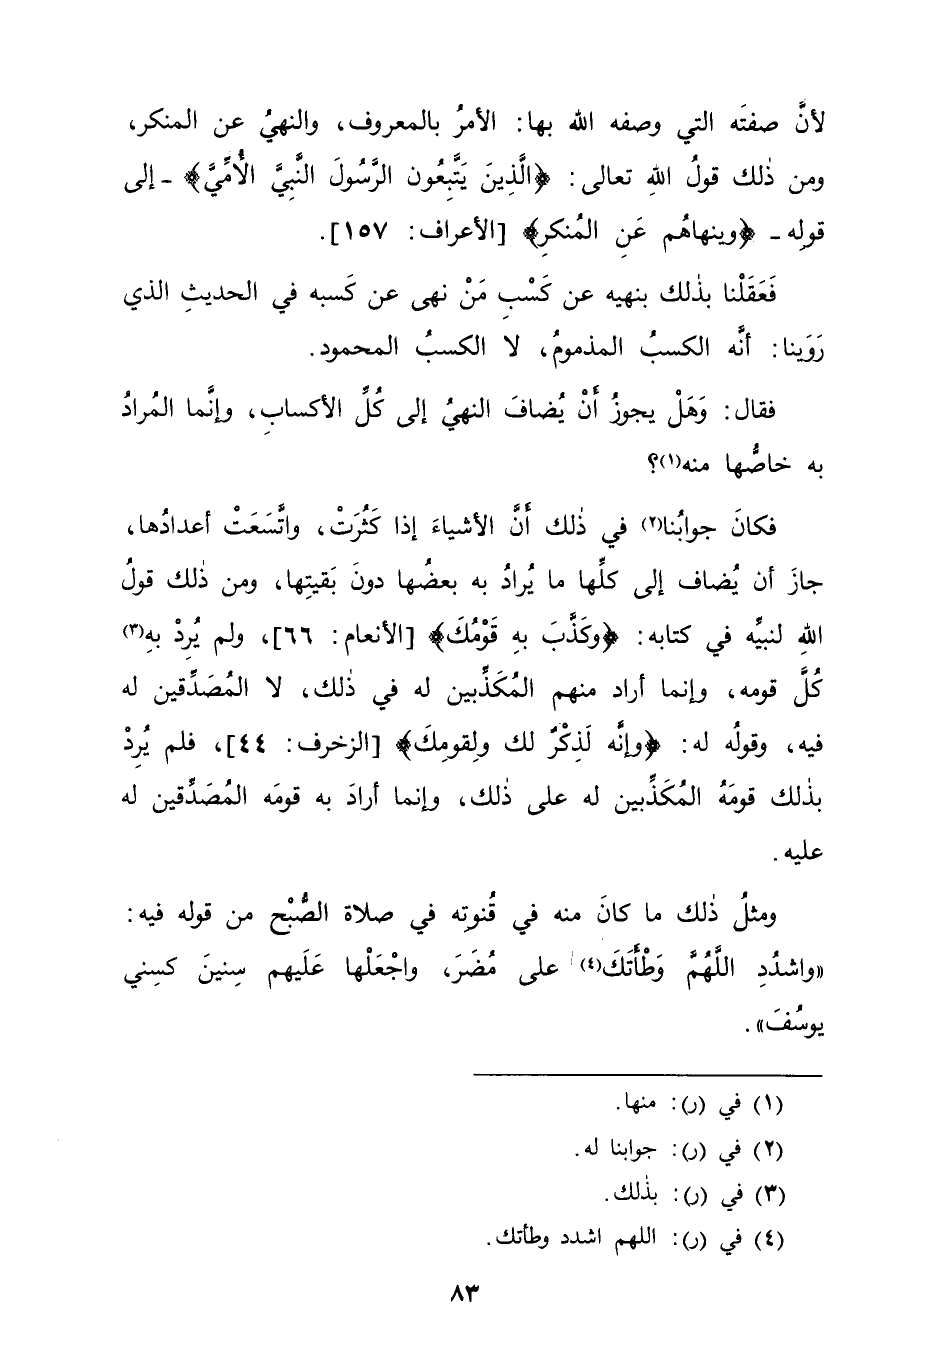 لأنَّ صفتَه التي وصفه الله بها: الأمرُ بالمعروف، والنهيُ عن المنكر،
ومن ذٰلك قولُ اللهِ تعالى: ﴿الَّذِينَ يَتَّبِعُون الرَّسُولَ النَّبِيَّ الأُمِّيَّ﴾ ـ إلى
قولِه ـ ﴿وينهاهُم عَنِ المُنكرِ﴾ [الأعراف: ١٥٧].
فَعَقَلْنا بذٰلك بنهيه عن كَسْبِ مَنْ نهى عن كَسبه في الحديثِ الذي
رَوَينا: أنَّه الكسبُ المذمومُ، لا الكسبُ المحمود.
فقال: وَهَلْ يجوزُ أَنْ يُضافَ النهيُ إلى كُلِّ الأكسابِ، وإنَّما المُرادُ
به خاصُّها منه(١)؟
فكانَ جوابُنا(٢) في ذٰلك أَنَّ الأشياءَ إذا كَثُرَتْ، واتَّسَعَتْ أعدادُها،
جازَ أن يُضاف إلى كلِّها ما يُرادُ به بعضُها دونَ بَقيتِها، ومن ذٰلك قولُ
اللهِ لنبيِّه في كتابه: ﴿وكَذَّبَ بهِ قَوْمُكَ﴾ [الأنعام: ٦٦]، ولم يُرِدْ بهِ(٣)
كُلَّ قومه، وإنما أراد منهم المُكَذِّبين له في ذٰلك، لا المُصَدِّقين له
فيه، وقولُه له: ﴿وإنَّه لَذِكْرٌ لك ولِقومِكَ﴾ [الزخرف: ٤٤]، فلم يُرِدْ
بذٰلك قومَهُ المُكَذِّبين له على ذٰلك، وإنما أرادَ به قومَه المُصَدِّقين له
عليه.
ومثلُ ذٰلك ما كانَ منه في قُنوتِه في صلاة الصُّبْح من قوله فيه:
«واشدُدِ اللَّهُمَّ وَطْأَتَكَ(٤) على مُضَرَ، واجْعَلْها عَلَيهم سِنينَ كسِني
يوسُفَ».
(١) في (ر): منها.
(٢) في (ر): جوابنا له.
(٣) في (ر): بذٰلك.
(٤) في (ر): اللهم اشدد وطأتك.
٨٣